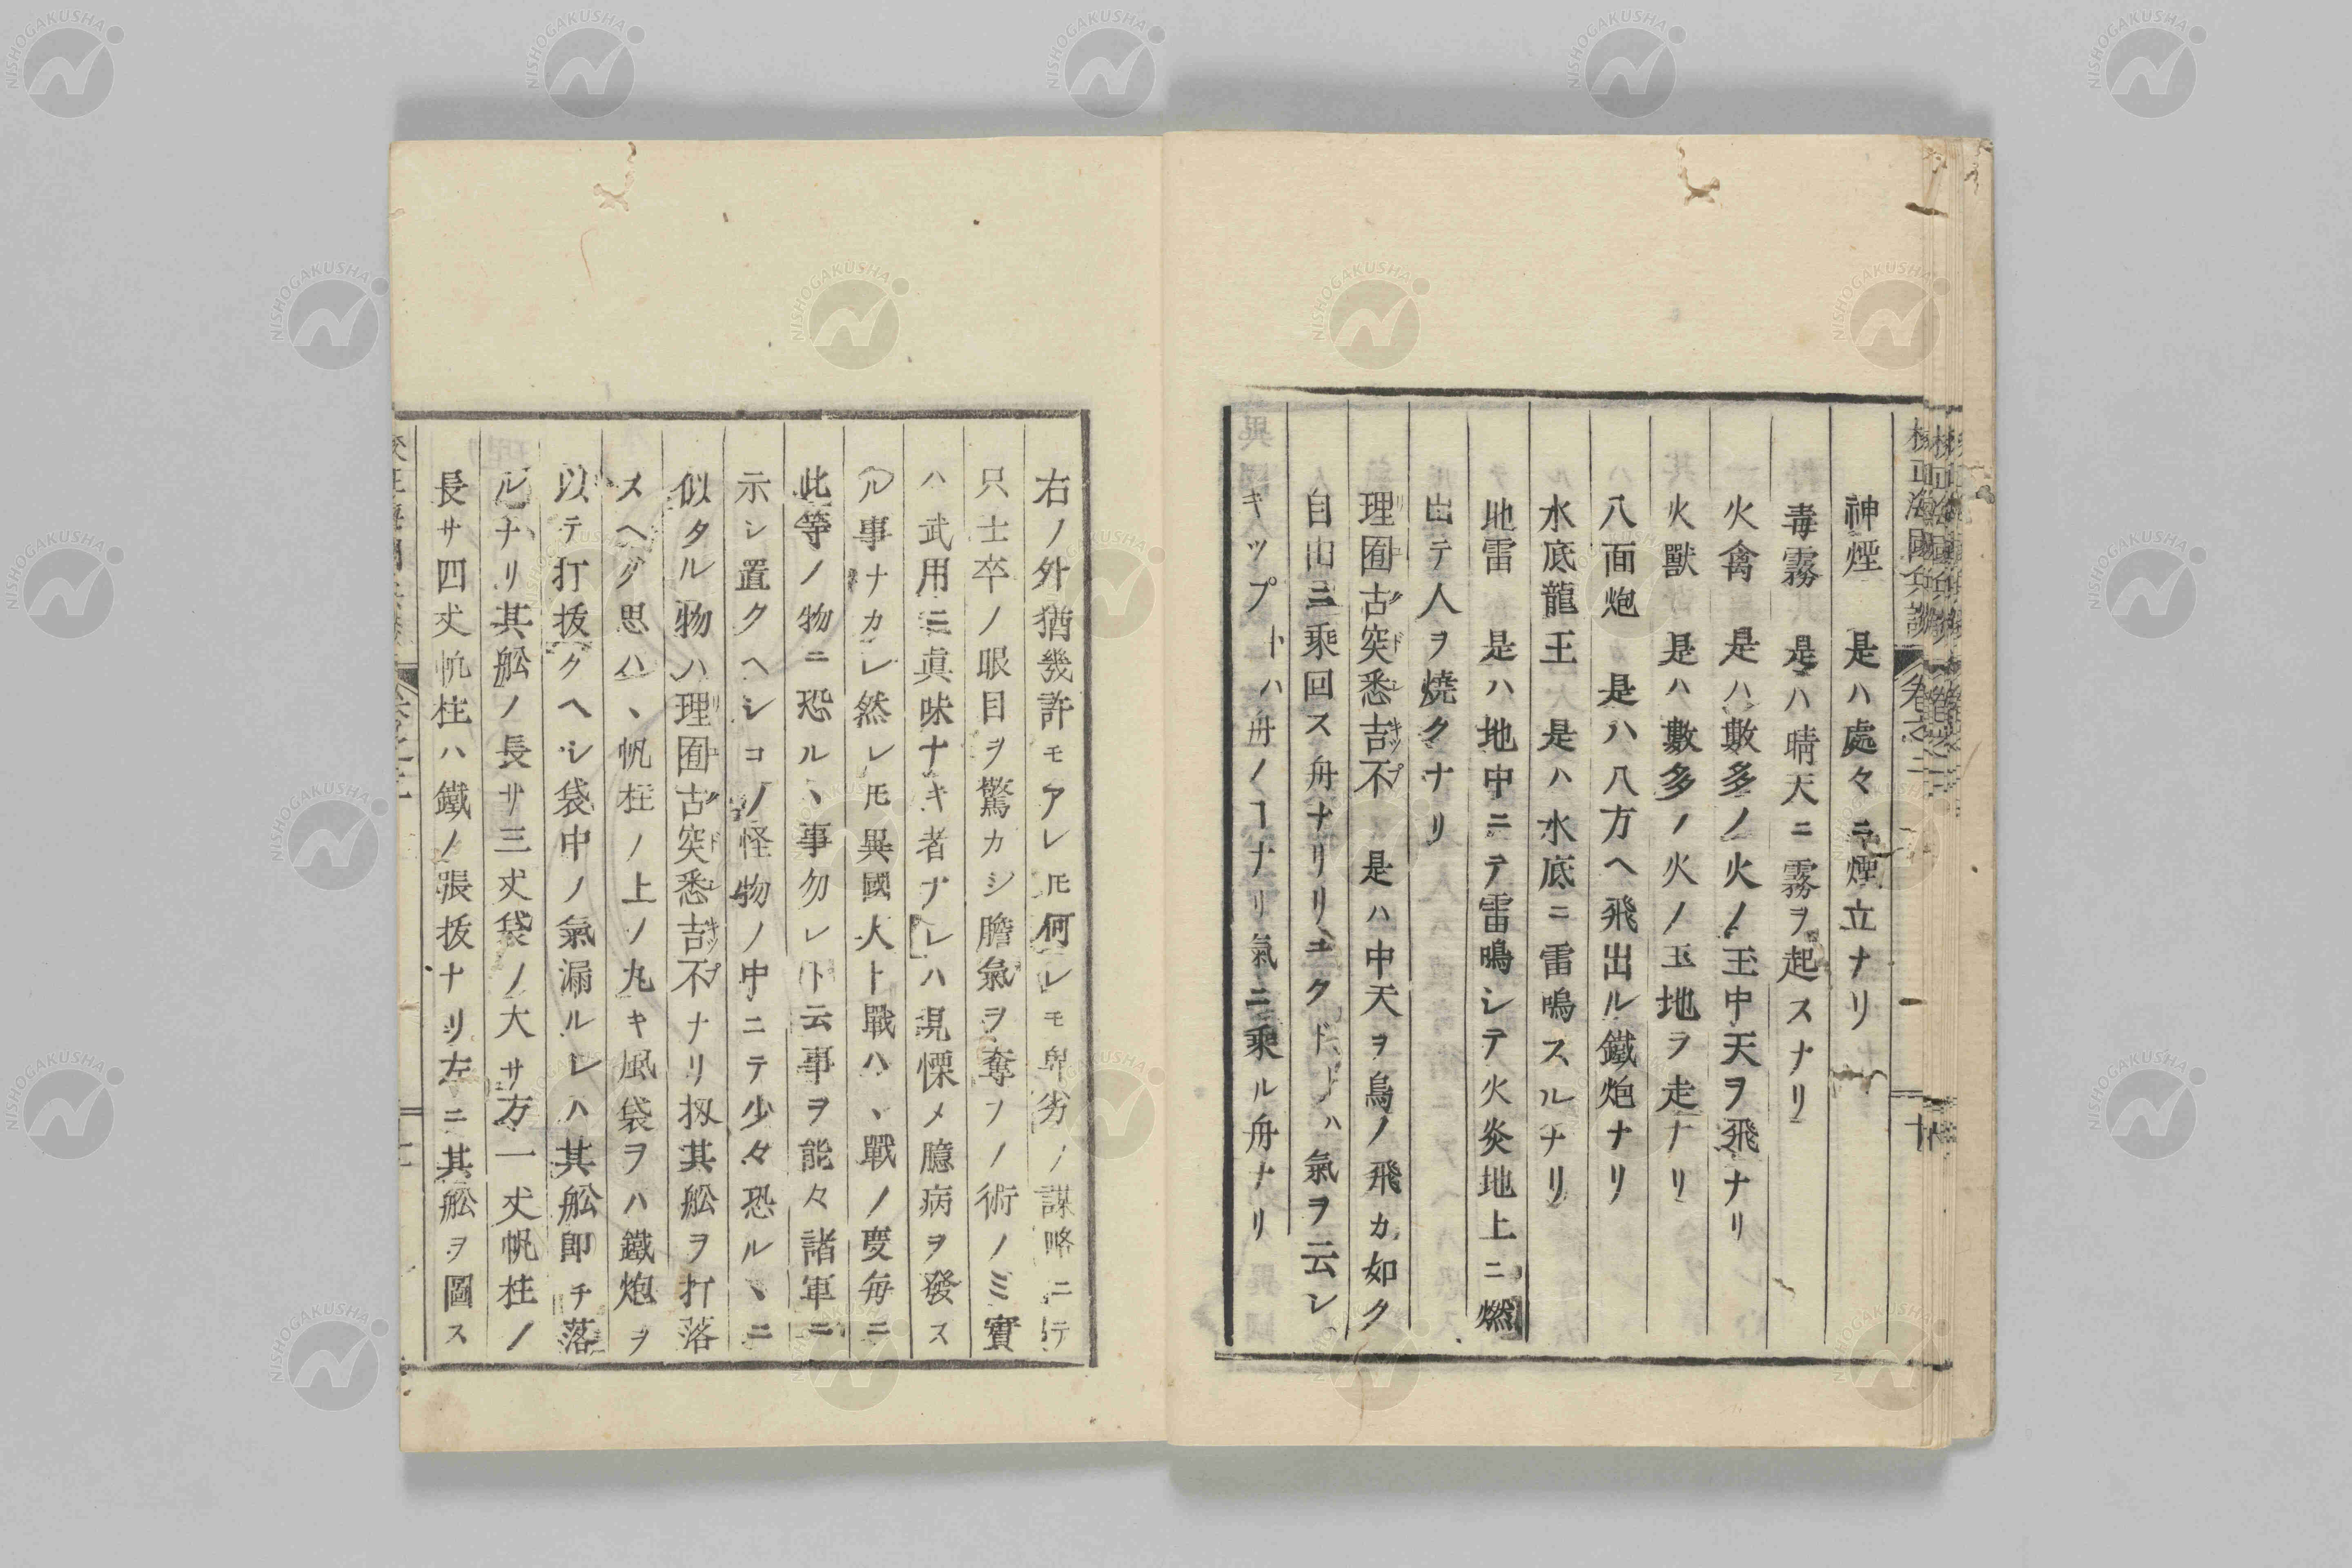 神煙　是ハ處々ニ煙立ナリ
毒霧　是ハ晴天ニ霧ヲ起スナリ
火禽　是ハ數多ノ火ノ玉中天ヲ飛ナリ
火獸　是ハ數多ノ火ノ玉地ヲ走ナリ
八面炮　是ハ八方ヘ飛出ル鐵炮ナリ
水底龍王　是ハ水底ニ雷鳴スルナリ
地雷　是ハ地中ニテ雷鳴シテ火炎地上ニ燃
出テ人ヲ燒クナリ
理囿古突悉吉不　是ハ中天ヲ鳥ノ飛カ如ク
自由ニ乘回ス舟ナリリユクドハ氣ヲ云レ
キツプトハ舟ノヿナリ氣ニ乘ル舟ナリ
右ノ外猶幾許モアレ𪜈何レモ卑劣ノ謀略ニテ
只士卒ノ眼目ヲ驚カシ膽氣ヲ奪フノ術ノミ實
ハ武用ニ眞味ナキ者ナレハ見慄メ臆病ヲ發ス
ル事ナカレ然レ𪜈異國人ト戰ハヽ戰ノ度毎ニ
此等ノ物ニ恐ルヽ事勿レト云事ヲ能々諸軍ニ
示シ置クヘシコノ怪物ノ中ニテ少々恐ルヽニ
似タル物ハ理囿古突悉吉不ナリ扨其舩ヲ打落
スヘク思ハヽ帆柱ノ上ノ丸キ風袋ヲハ鐵炮ヲ
以テ打拔クヘシ袋中ノ氣漏ルレハ其舩即チ落
ルナリ其舩ノ長サ三丈袋ノ大サ方一丈帆柱ノ
長サ四丈帆柱ハ鐵ノ張拔ナリ左ニ其舩ヲ圖ス
校正海國兵談
卷之二
NISHOGAKUSHA